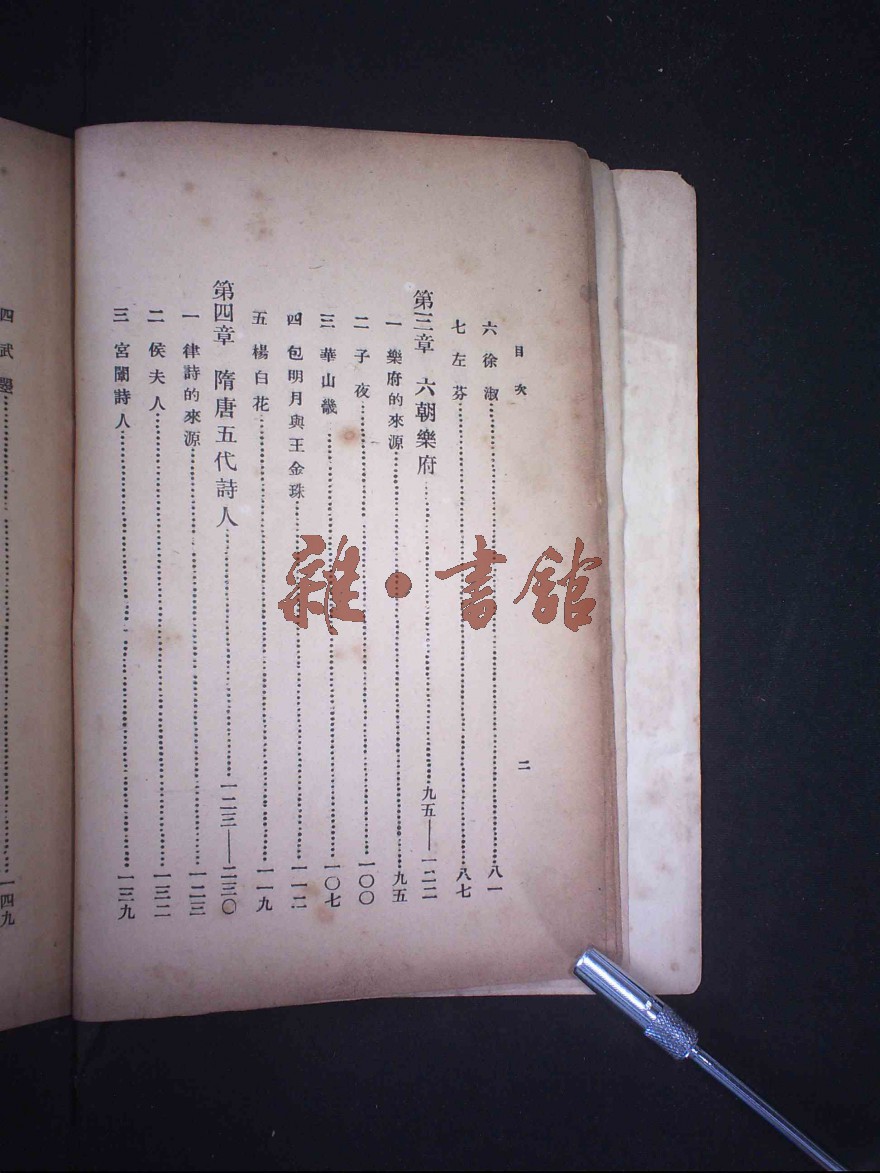 目次 二
六 徐淑 八一
七 左芬 八七
第三章 六朝樂府 九五——一二二
一 樂府的來源 九五
二 子夜 一〇〇
三 華山畿 一〇七
四 包明月與王金珠 一一二
五 楊白花 一一九
第四章 隋唐五代詩人 一二三——二三〇
一 律詩的來源 一二三
二 侯夫人 一三二
三 宮闈詩人 一三九
四 武曌 一四九
雜·書館